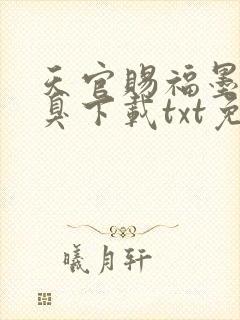 天官賜福墨
臭下載txt免
曦月轩